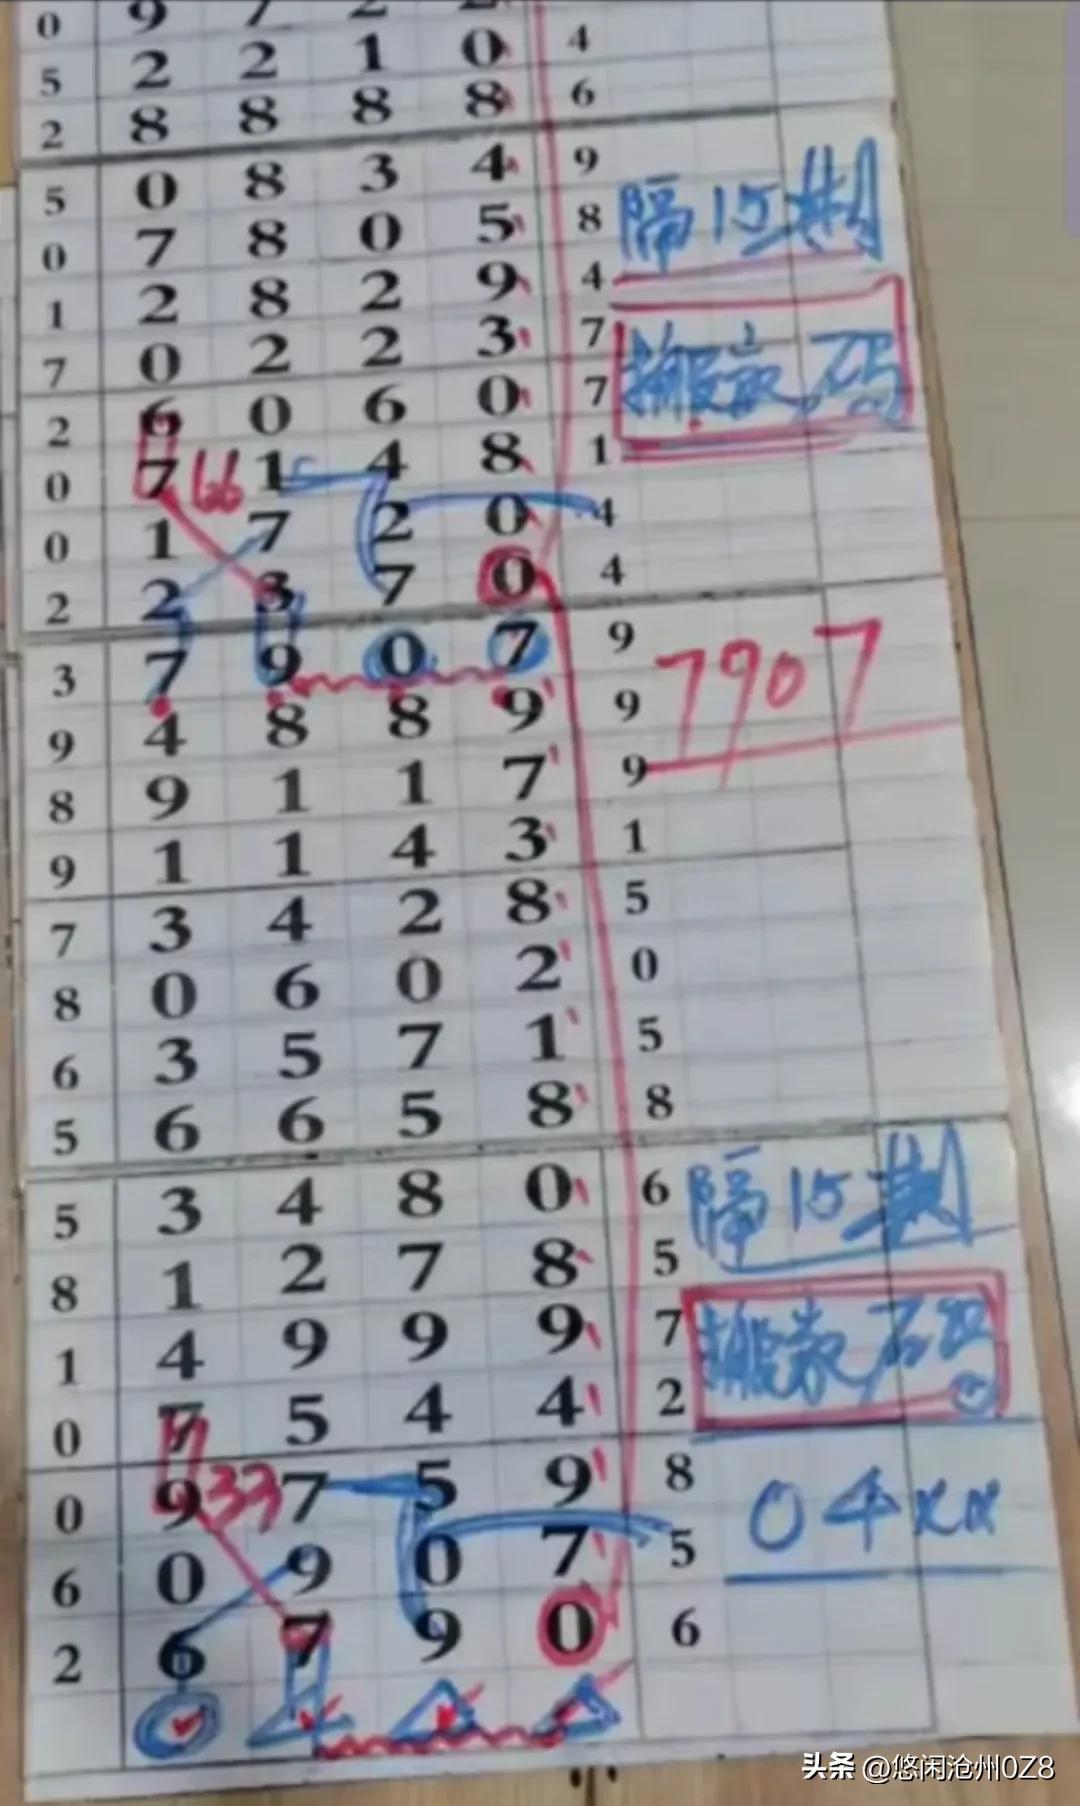 0 9 7 2 2
5 2 2 1 0 4
2 8 8 8 8 6
5 0 8 3 4 9
0 7 8 0 5 8 隔15期
1 2 8 2 9 4
7 0 2 2 3 7 搬家码
2 6 0 6 0 7
0 7 66 1 4 8 1
0 1 7 2 0 4
2 2 3 7 0 4
3 7 9 0 7 9 7907
9 4 8 8 9 9
8 9 1 1 7 9
9 1 1 4 3 1
7 3 4 2 8 5
8 0 6 0 2 0
6 3 5 7 1 5
5 6 6 5 8 8
5 3 4 8 0 6 隔15期
8 1 2 7 8 5
1 4 9 9 9 7 搬家码
0 7 5 4 4 2
0 9 33 7 5 9 8 04xx
6 0 9 0 7 5
2 6 7 9 0 6
头条 @悠闲沧州0Z8